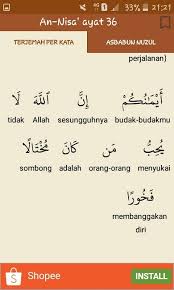 33% 21:21
An-Nisa' ayat 36
TERJEMAH PER KATA ASBABUN NUZUL
perjalanan)
أَيْمَٰنُكُمْ إِنَّ ٱللَّهَ لَا
tidak Allah sesungguhnya budak-budakmu
يُحِبُّ مَن كَانَ مُخْتَالًا
sombong adalah orang-orang menyukai
فَخُورًا
membanggakan
diri
Shopee INSTALL